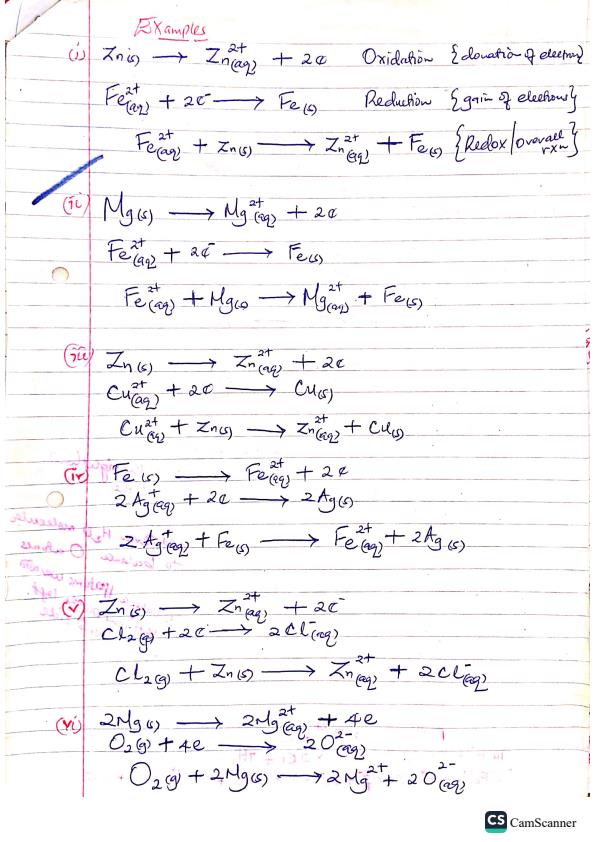 Examples
(i) Zn(s) → Zn²⁺(aq) + 2e Oxidation {donation of electrons}
Fe²⁺(aq) + 2e⁻ → Fe(s) Reduction {gain of electrons}
Fe²⁺(aq) + Zn(s) → Zn²⁺(aq) + Fe(s) {Redox/overall rxn}
(ii) Mg(s) → Mg²⁺(aq) + 2e
Fe²⁺(aq) + 2e⁻ → Fe(s)
Fe²⁺(aq) + Mg(s) → Mg²⁺(aq) + Fe(s)
(iii) Zn(s) → Zn²⁺(aq) + 2e
Cu²⁺(aq) + 2e → Cu(s)
Cu²⁺(aq) + Zn(s) → Zn²⁺(aq) + Cu(s)
(iv) Fe(s) → Fe²⁺(aq) + 2e
2Ag⁺(aq) + 2e → 2Ag(s)
2Ag⁺(aq) + Fe(s) → Fe²⁺(aq) + 2Ag(s)
(v) Zn(s) → Zn²⁺(aq) + 2e⁻
Cl₂(g) + 2e → 2Cl⁻(aq)
Cl₂(g) + Zn(s) → Zn²⁺(aq) + 2Cl⁻(aq)
(vi) 2Mg(s) → 2Mg²⁺(aq) + 4e
O₂(g) + 4e → 2O²⁻(aq)
O₂(g) + 2Mg(s) → 2Mg²⁺ + 2O²⁻(aq)
CS CamScanner